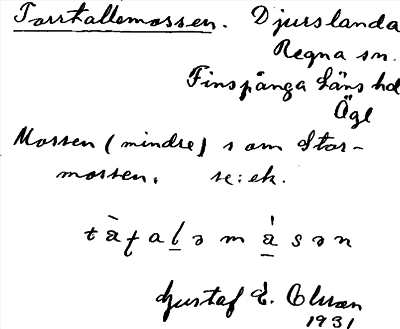 Torrkallemossen. Djurslanda
Regna sn.
Finspånga Läns hd
Ögl
Mossen (mindre) s om Stor-
mossen. se: ek.
Gustaf E. Olsson
1931